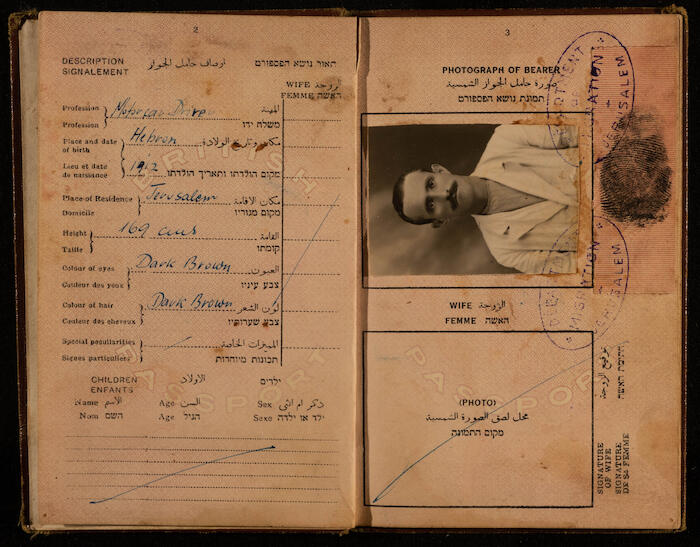 2
DESCRIPTION اوصاف حامل الجواز תאור נושא הפספורט
SIGNALEMENT
WIFE الزوجة
FEMME האשה
Profession Motorcar Driver المهنة
Profession משלח ידו
Place and date of birth Hebron مكان وتاريخ الولادة
Lieu et date de naissance 1912 מקום הולדתו ותאריך הולדתו
Place of Residence Jerusalem مكان الاقامة
Domicile מקום מגוריו
Height 169 cms القامة
Taille קומתו
Colour of eyes Dark Brown العيون
Couleur des yeux צבע עיניו
Colour of hair Dark Brown لون الشعر
Couleur des cheveux צבע שערותיו
Special peculiarities المميزات الخاصة
Signes particuliers תכונות מיוחדות
CHILDREN الاولاد ילדים
ENFANTS
Name الاسم Age السن Sex ذكر ام انثى
Nom השם Age הגיל Sexe ילד או ילדה
BRITISH
PASSPORT
3
PHOTOGRAPH OF BEARER
صورة حامل الجواز الشمسية
תמונת נושא הפספורט
WIFE الزوجة
FEMME האשה
(PHOTO)
محل لصق الصورة الشمسية
מקום התמונה
PASSPORT
توقيع الزوجة
חתימת האשה
SIGNATURE
OF WIFE
SIGNATURE
DE SA FEMME
MIGRATION
JERUSALEM
MIGRATION
JERUSALEM